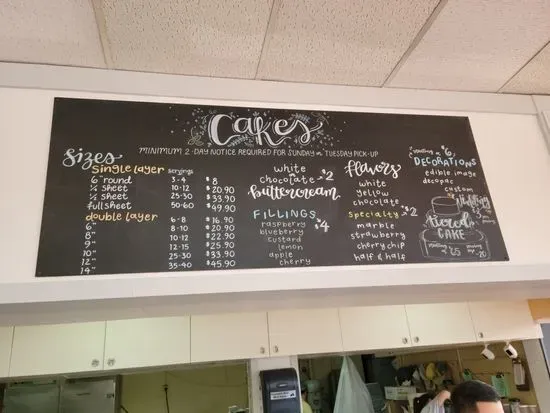 Cakes
MINIMUM 2-DAY NOTICE REQUIRED FOR SUNDAY or TUESDAY PICK-UP
Sizes
Single layer servings
6" round 3-4 $8
1/4 sheet 10-12 $20.90
1/2 sheet 25-30 $33.90
full sheet 50-60 $49.90
double layer
6" 6-8 $16.90
8" 8-10 $20.90
9" 10-12 $22.90
10" 12-15 $25.90
12" 25-30 $33.90
14" 35-40 $45.90
white
chocolate $2
buttercream
FILLINGS $4
raspberry
blueberry
custard
lemon
apple
cherry
flavors
white
yellow
chocolate
Specialty $2
marble
strawberry
cherry chip
half & half
starting at $6
DECORATIONS
edible image
decopac
custom
tiered
CAKE
starting at